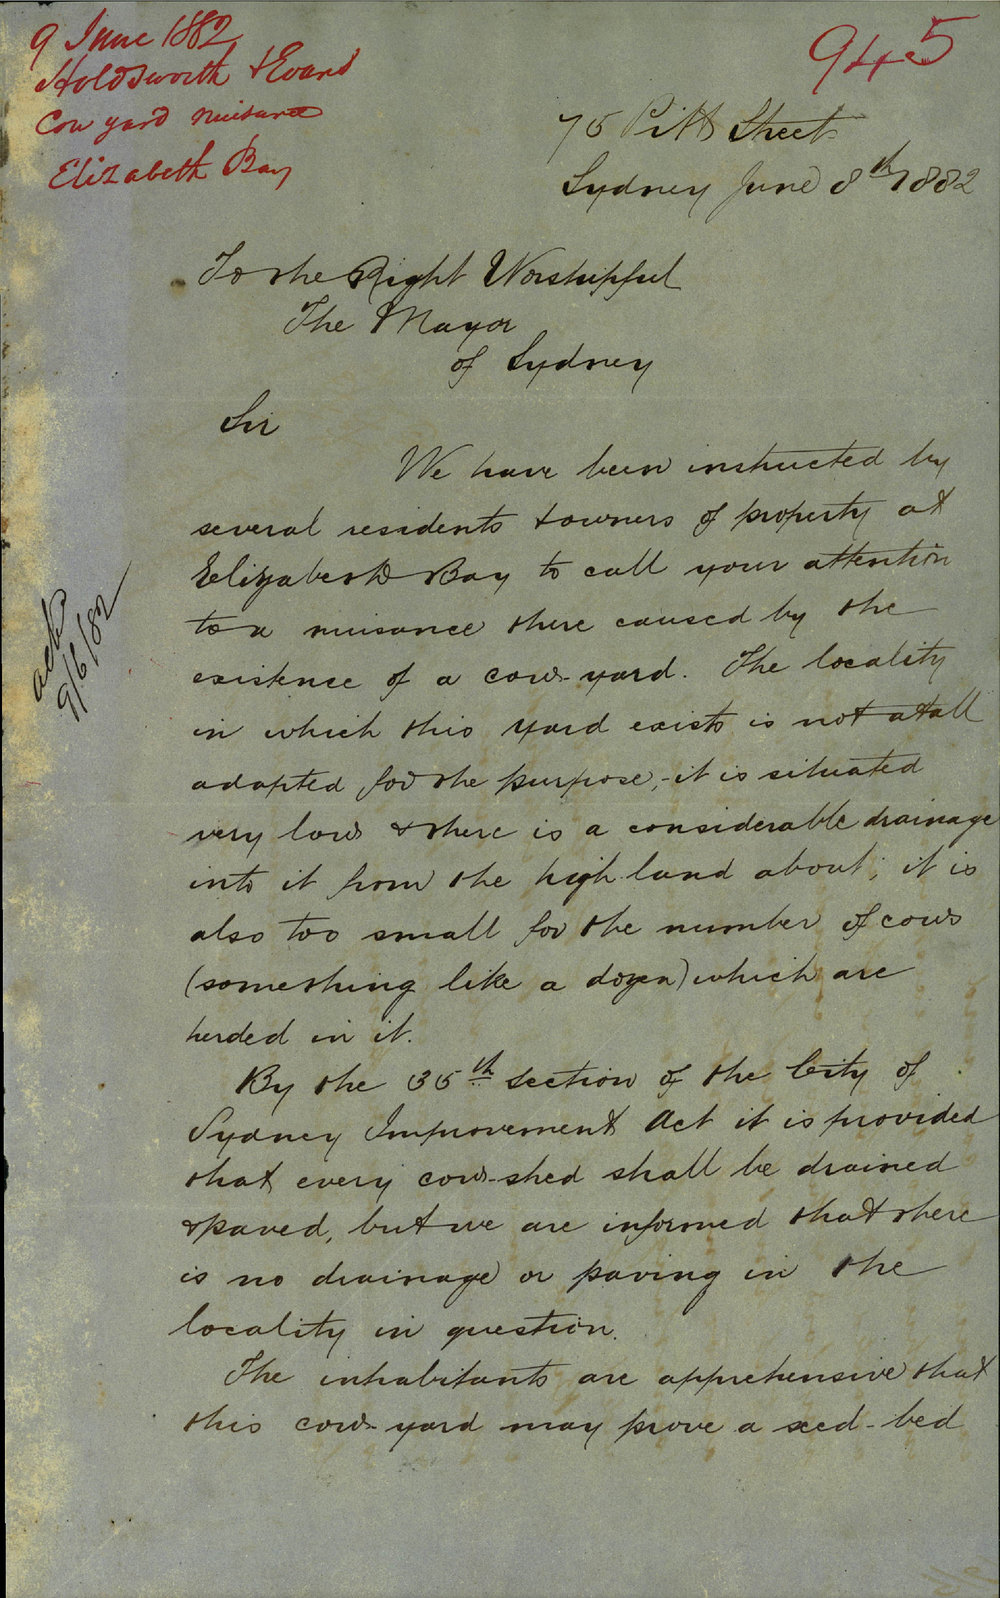 9 June 1882
Holdsworth & Evans
Cow yard nuisance
Elizabeth Bay
945
75 Pitt Street
Sydney June 8th 1882
To the Right Worshipful
The Mayor
of Sydney
Sir
We have been instructed by
several residents & owners of property at
Elizabeth Bay to call your attention
to a nuisance there caused by the
existence of a cow-yard. The locality
in which this yard exists is not at all
adapted for the purpose,- it is situated
very low & there is a considerable drainage
into it from the high land about; it is
also too small for the number of cows
(something like a dozen) which are
herded in it.
By the 35th section of the City of
Sydney Improvement Act it is provided
that every cow-shed shall be drained
& paved, but we are informed that there
is no drainage or paving in the
locality in question.
The inhabitants are apprehensive that
this cow-yard may prove a seed-bed
9/6/82